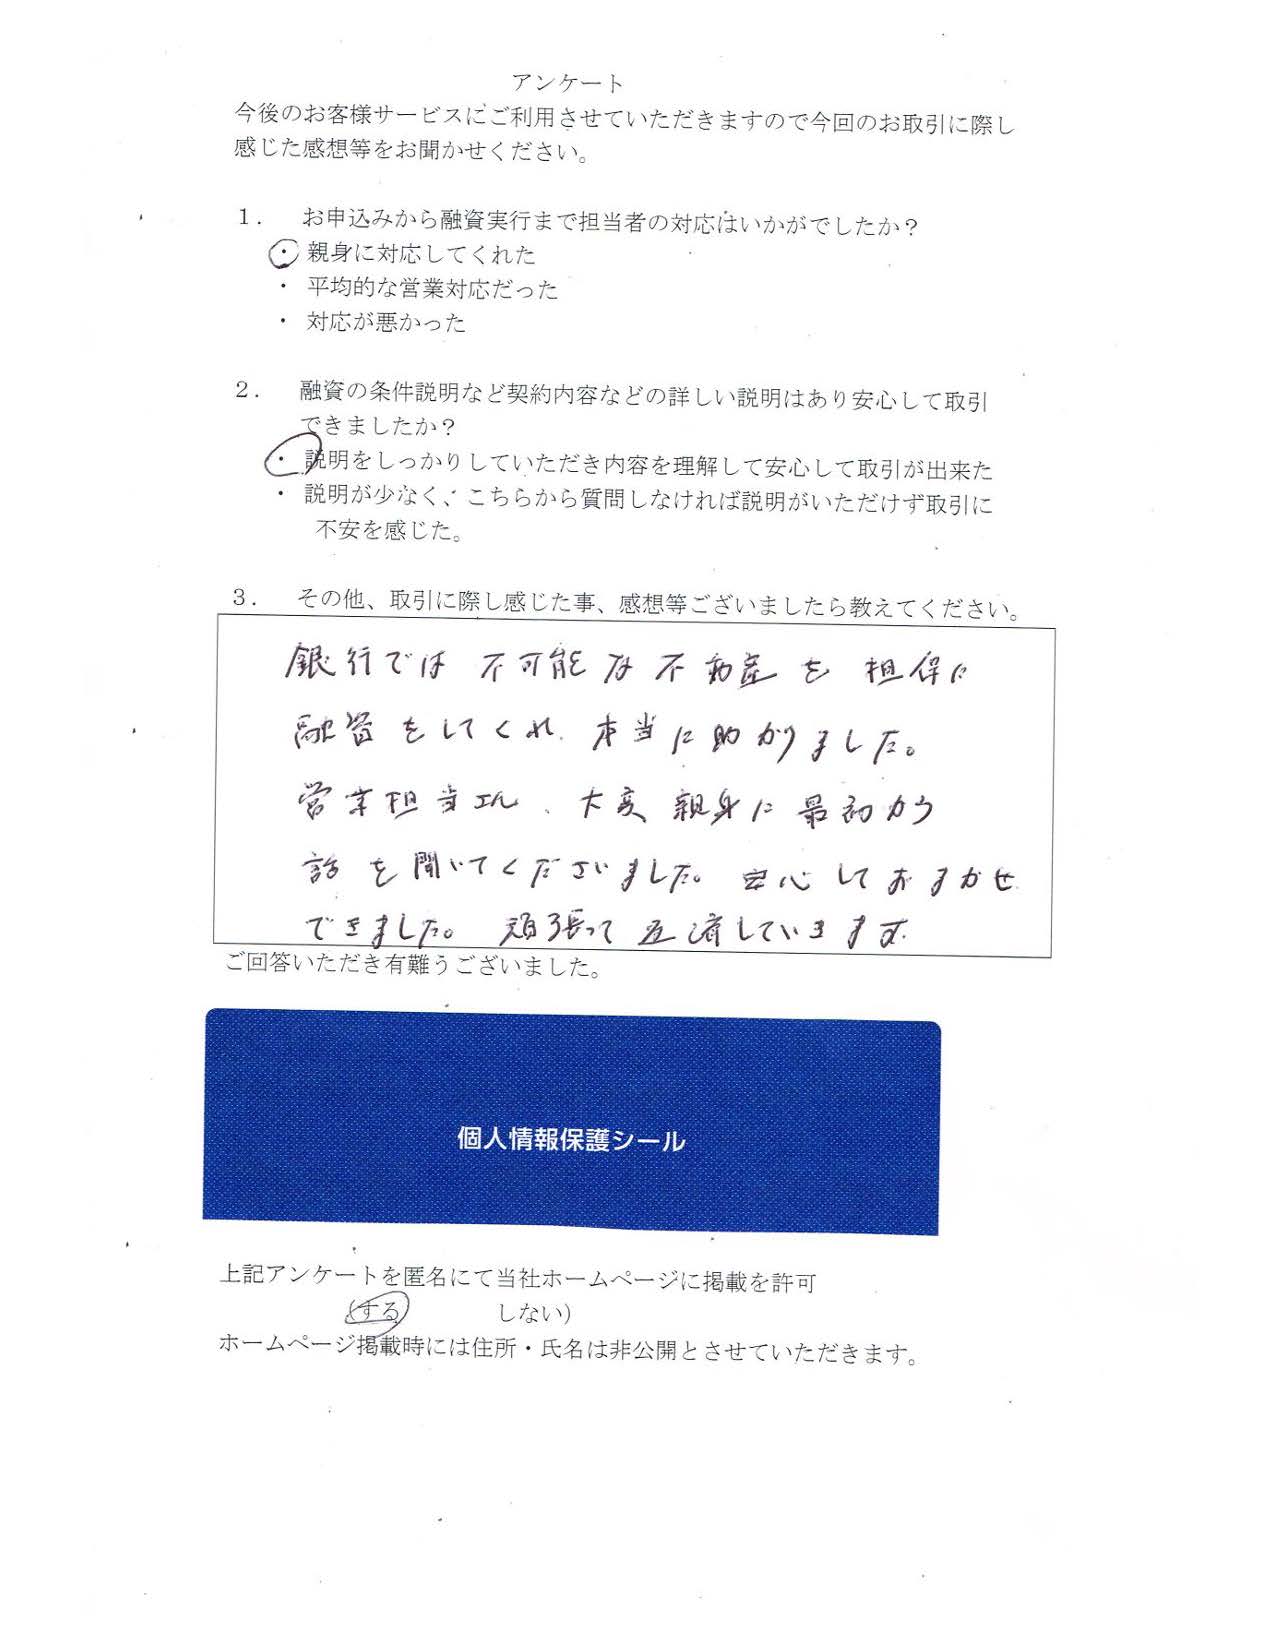 アンケート
今後のお客様サービスにご利用させていただきますので今回のお取引に際し
感じた感想等をお聞かせください。
1. お申込みから融資実行まで担当者の対応はいかがでしたか？
・ 親身に対応してくれた
・ 平均的な営業対応だった
・ 対応が悪かった
2. 融資の条件説明など契約内容などの詳しい説明はあり安心して取引
できましたか？
・ 説明をしっかりしていただき内容を理解して安心して取引が出来た
・ 説明が少なく、こちらから質問しなければ説明がいただけず取引に
不安を感じた。
3. その他、取引に際し感じた事、感想等ございましたら教えてください。
銀行では不可能な不動産を担保に
融資をしてくれ、本当に助かりました。
営業担当さん、大変親身に最初から
話を聞いてくださいました。安心しておまかせ
できました。頑張って返済していきます。
ご回答いただき有難うございました。
個人情報保護シール
上記アンケートを匿名にて当社ホームページに掲載を許可
(する しない)
ホームページ掲載時には住所・氏名は非公開とさせていただきます。